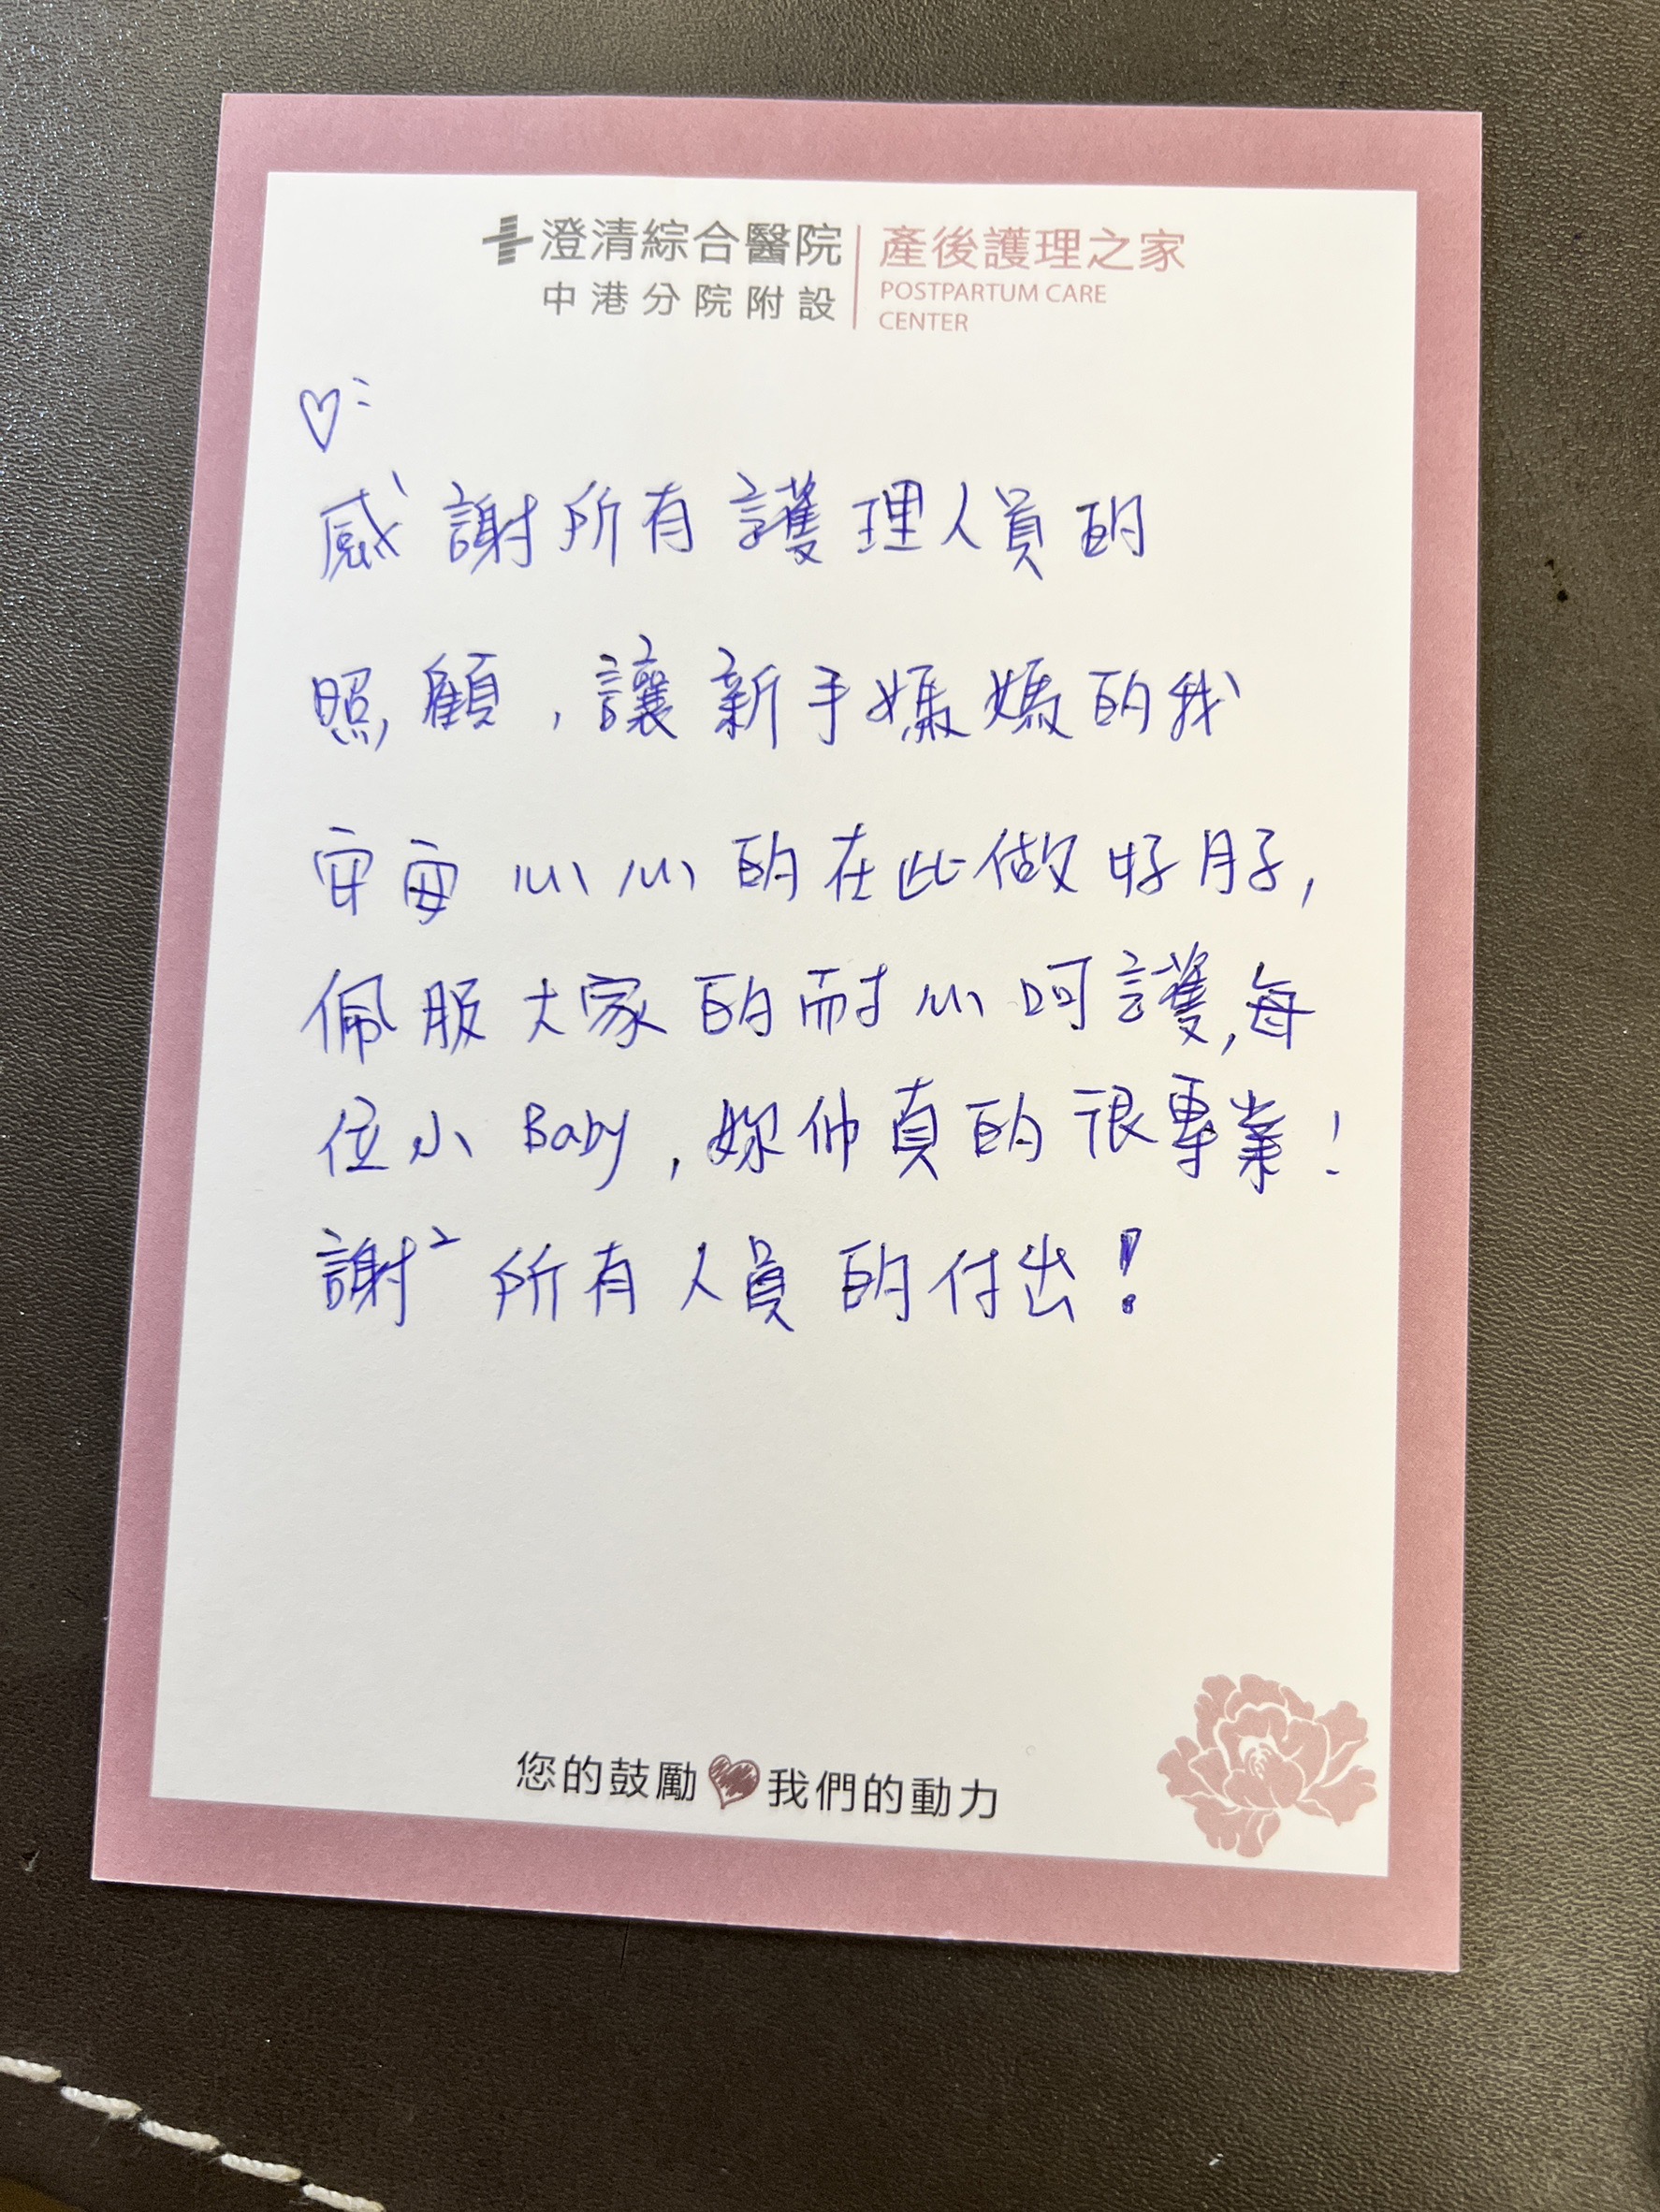 澄清綜合醫院
中港分院附設
產後護理之家
POSTPARTUM CARE
CENTER
♡
感謝所有護理人員的
照顧,讓新手媽媽的我
安安心心的在此做好月子,
佩服大家的耐心呵護,每
位小Baby,妳們真的很專業!
謝²所有人員的付出!
您的鼓勵
我們的動力